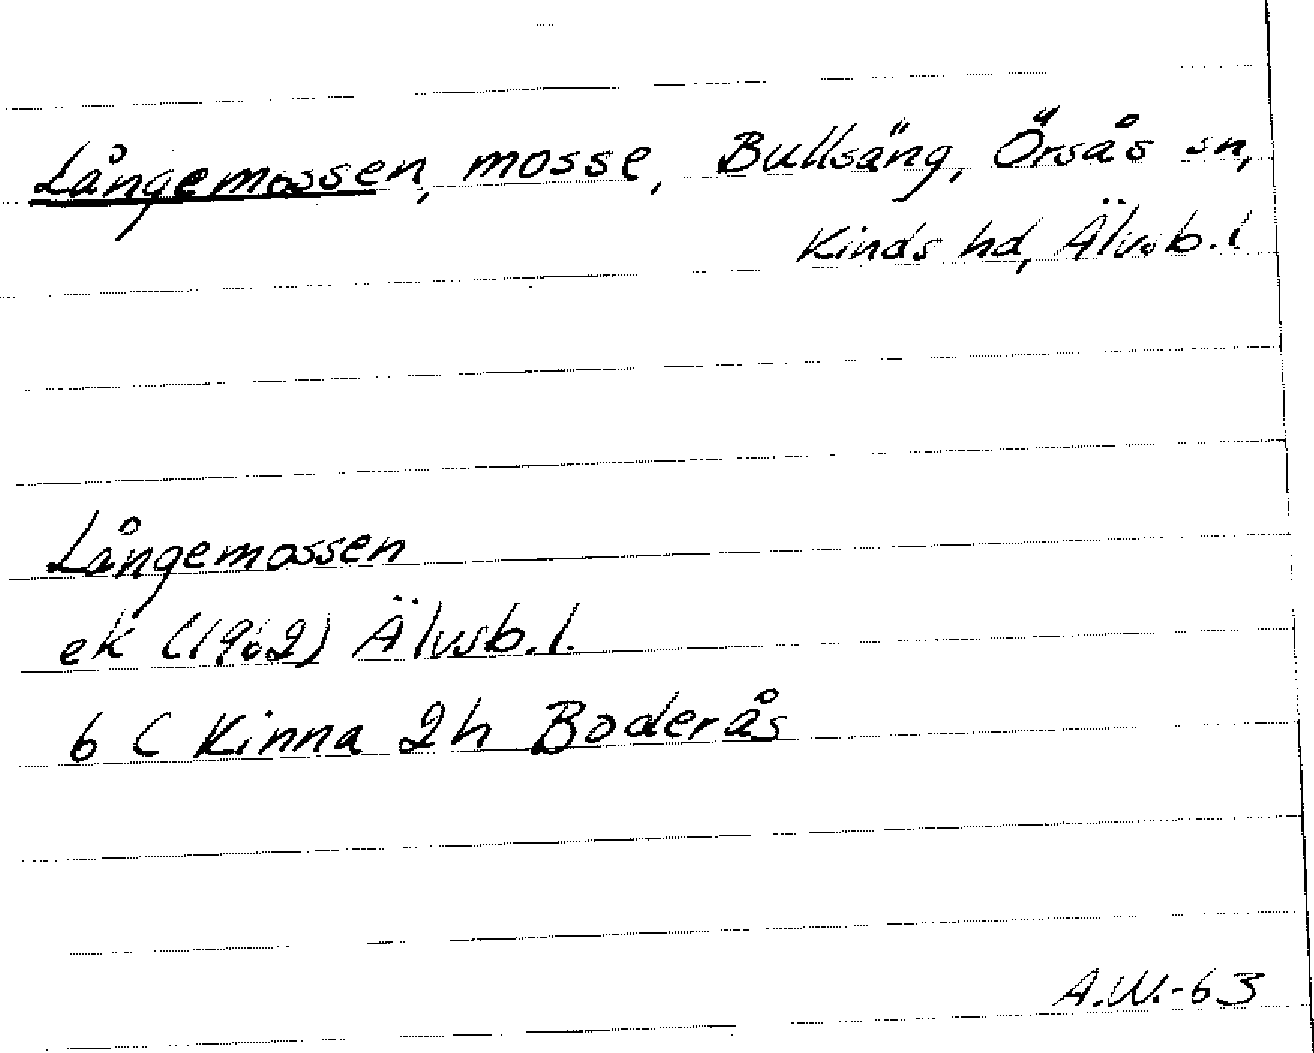 Långemossen, mosse, Bullsäng, Örsås sn,
Kinds hd, Älvsb.l
Långemossen
ek (1962) Älvsb.l.
6 C Kinna 2h Boderås
A.W.-63